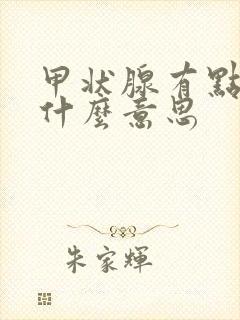 甲状腺有點
什麼意思
朱家輝